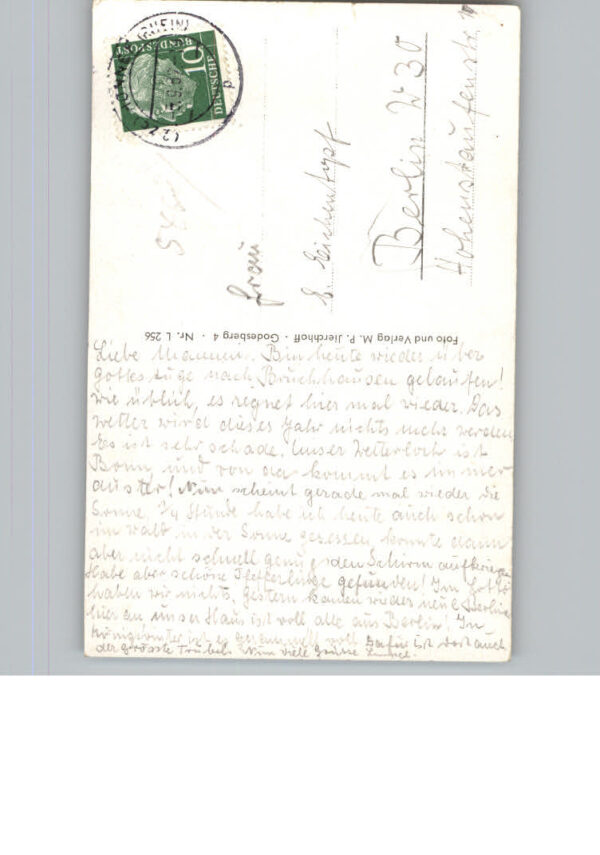 (22c) HONNEF (RHEIN)
DEUTSCHE
BUNDESPOST
10
Frau
E. Eichentopf
Berlin W 30
Hohenstaufenstr.
Foto und Verlag M. P. Jierchhoff · Godesberg 4 · Nr. L 256
Liebe Mammi. Bin heute wieder über
Gottes zuge nach Bruchhausen gelaufen!
wie üblich, es regnet hier mal wieder. Das
Wetter wird dieses Jahr nichts mehr werden
Es ist sehr schade. Unser Wetterloch ist
Bonn, und von da kommt es immer
duster! Nun scheint gerade mal wieder die
Sonne. 1/4 Stunde habe ich heute auch schon
im wald in der Sonne gesessen, konnte dann
aber nicht schnell genug den Schirm aufkriegen
Habe aber schöne Pfefferlinge gefunden! In
haben wir nichts. Gestern kamen wieder neue Berliner
hier an unser Haus ist voll alle aus Berlin. In
Königswinter ist es gerammelt voll Dafür ist dort auch
der grösste Trubel. Nun viele Grüsse